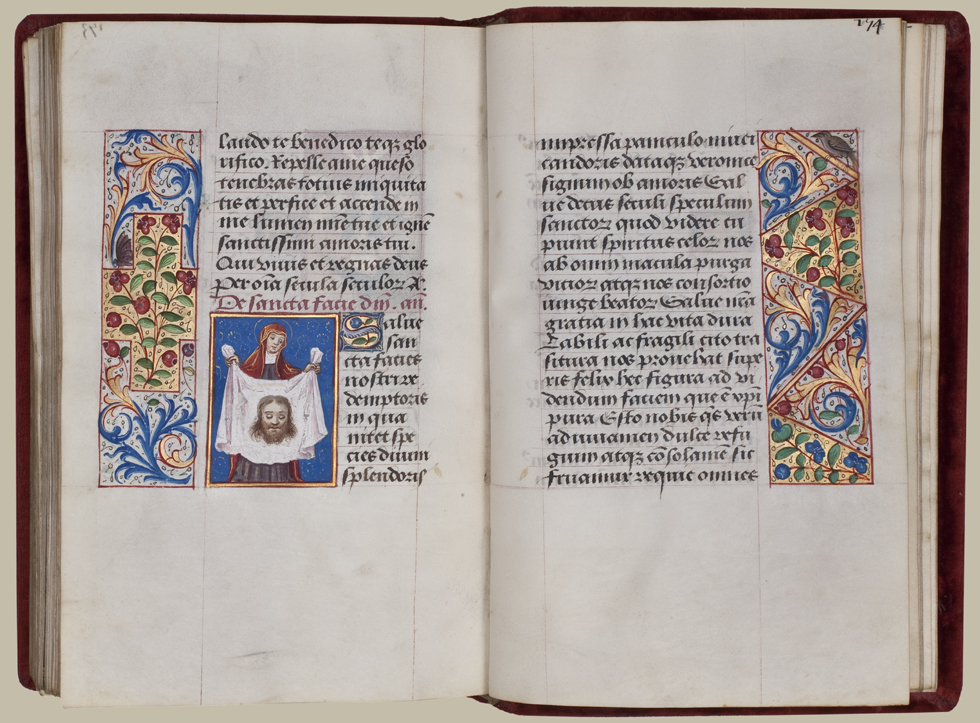 laudo te benedico teqz glo
rifico. Repelle a me queso
tenebras totius iniquita
tis et perfice et accende in
me lumen mẽtis tue et ignẽ
sanctissimi amoris tui.
Qui vivis et regnas deus
Per oĩa secula seculoꝝ A.
De sancta facie dñi. añ.
Salue
san
cta facies
nostri re
demptoris
in qua
nitet spe
cies diuini
splendoris
174
impressa paniculo niuei
candoris dataqz veronice
signum ob amoris Sal
ue decus seculi speculum
sanctoꝝ quod videre cu
piunt spiritus celoꝝ nos
ab omni macula purga
vicioꝝ atqz nos consortio
iunge beatoꝝ Salue nr̃a
gratia in hac vita dura
Labili ac fragili cito tra
situra nos prouehat supe
ris felix hec figura ad vi
dendum faciem que ẽ xp̃i
pura Esto nobis q̃s
adiuuamen dulce refri
gium atqz cõsolamẽ sic
fruamur requie omnes